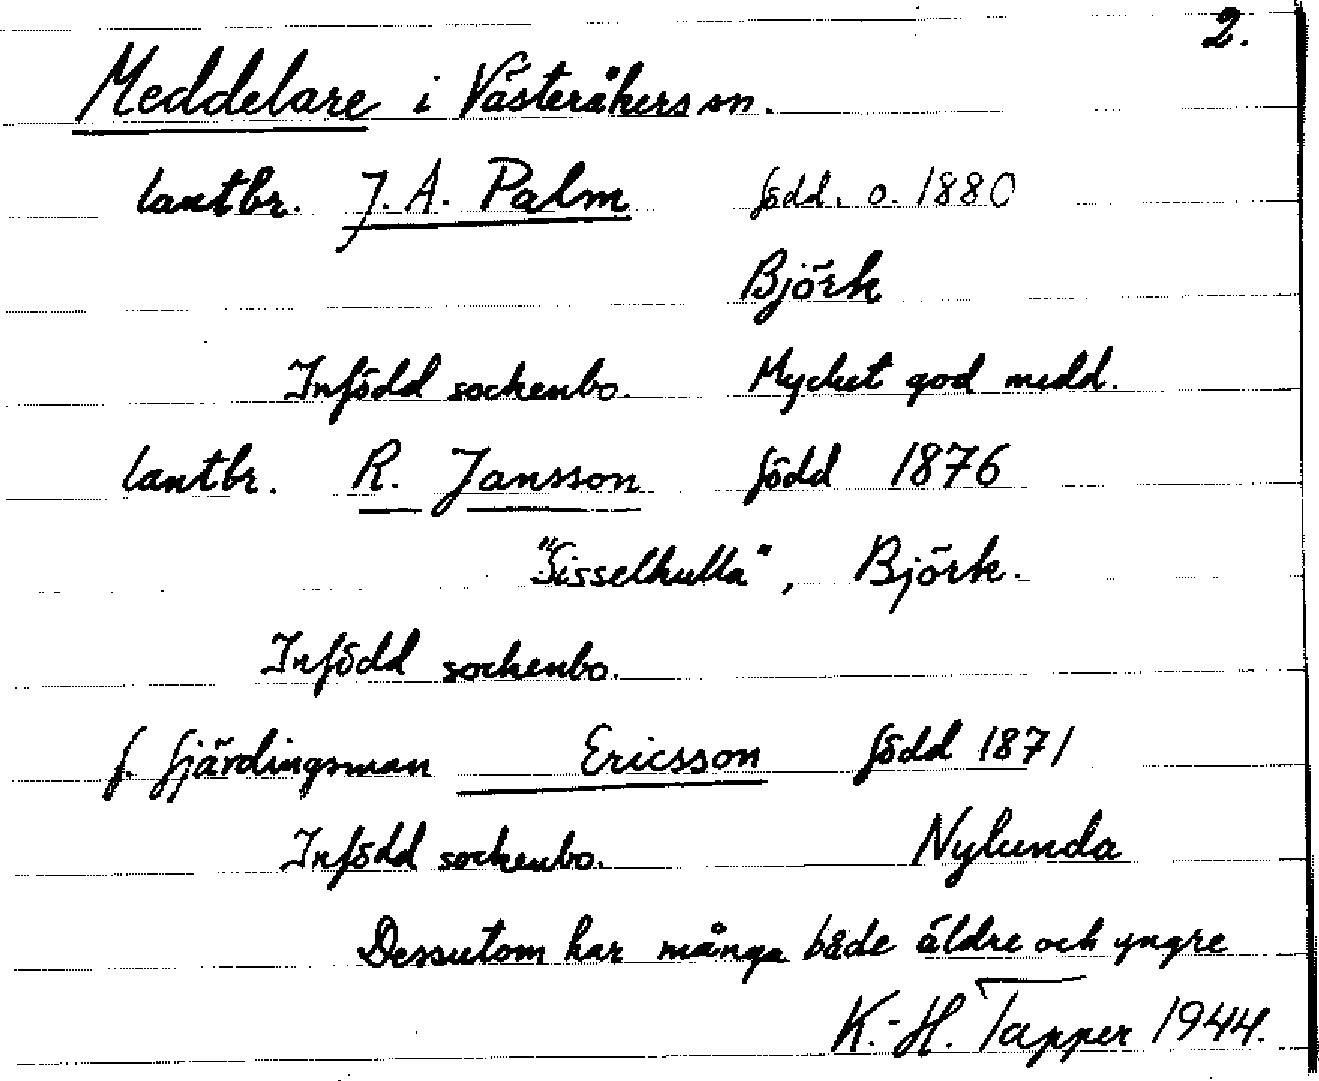 2.
Meddelare i Västeråkers sn.
lantbr. J. A. Palm född. o. 1880
Björk
Infödd sockenbo. Mycket god medd.
lantbr. R. Jansson född 1876
"Sisselkulla", Björk.
Infödd sockenbo.
f. fjärdingsman Ericsson född 1871
Infödd sockenbo. Nylunda
Dessutom har många både äldre och yngre
K.-H. Tapper 1944.